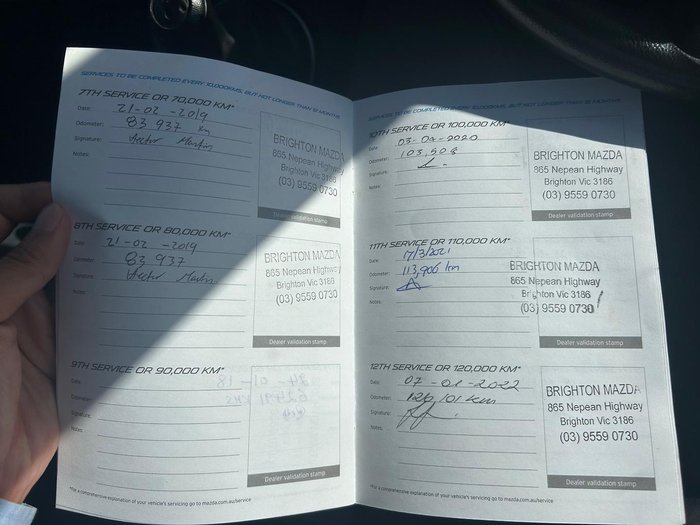 SERVICES TO BE COMPLETED EVERY 10,000KMS, BUT NOT LONGER THAN 12 MONTHS
7TH SERVICE OR 70,000 KM*
Date: 21-02-2019
Odometer: 83 937 km
Signature: Hector Martin
Notes:
BRIGHTON MAZDA
865 Nepean Highway
Brighton Vic 3186
(03) 9559 0730
Dealer validation stamp
8TH SERVICE OR 80,000 KM*
Date: 21-02-2019
Odometer: 83 937
Signature: Hector Martin
Notes:
BRIGHTON MAZDA
865 Nepean Highway
Brighton Vic 3186
(03) 9559 0730
Dealer validation stamp
9TH SERVICE OR 90,000 KM*
Date:
Odometer:
Signature:
Notes:
Dealer validation stamp
*For a comprehensive explanation of your vehicle's servicing go to mazda.com.au/service
SERVICES TO BE COMPLETED EVERY 10,000KMS, BUT NOT LONGER THAN 12 MONTHS
10TH SERVICE OR 100,000 KM*
Date: 2020
Odometer: 103,508
Signature:
Notes:
BRIGHTON MAZDA
865 Nepean Highway
Brighton Vic 3186
(03) 9559 0730
Dealer validation stamp
11TH SERVICE OR 110,000 KM*
Date: 17/3/2021
Odometer: 113,906 km
Signature:
Notes:
BRIGHTON MAZDA
865 Nepean Highway
Brighton Vic 3186
(03) 9559 0730
Dealer validation stamp
12TH SERVICE OR 120,000 KM*
Date: 2022
Odometer: km
Signature:
Notes:
BRIGHTON MAZDA
865 Nepean Highway
Brighton Vic 3186
(03) 9559 0730
Dealer validation stamp
*For a comprehensive explanation of your vehicle's servicing go to mazda.com.au/service